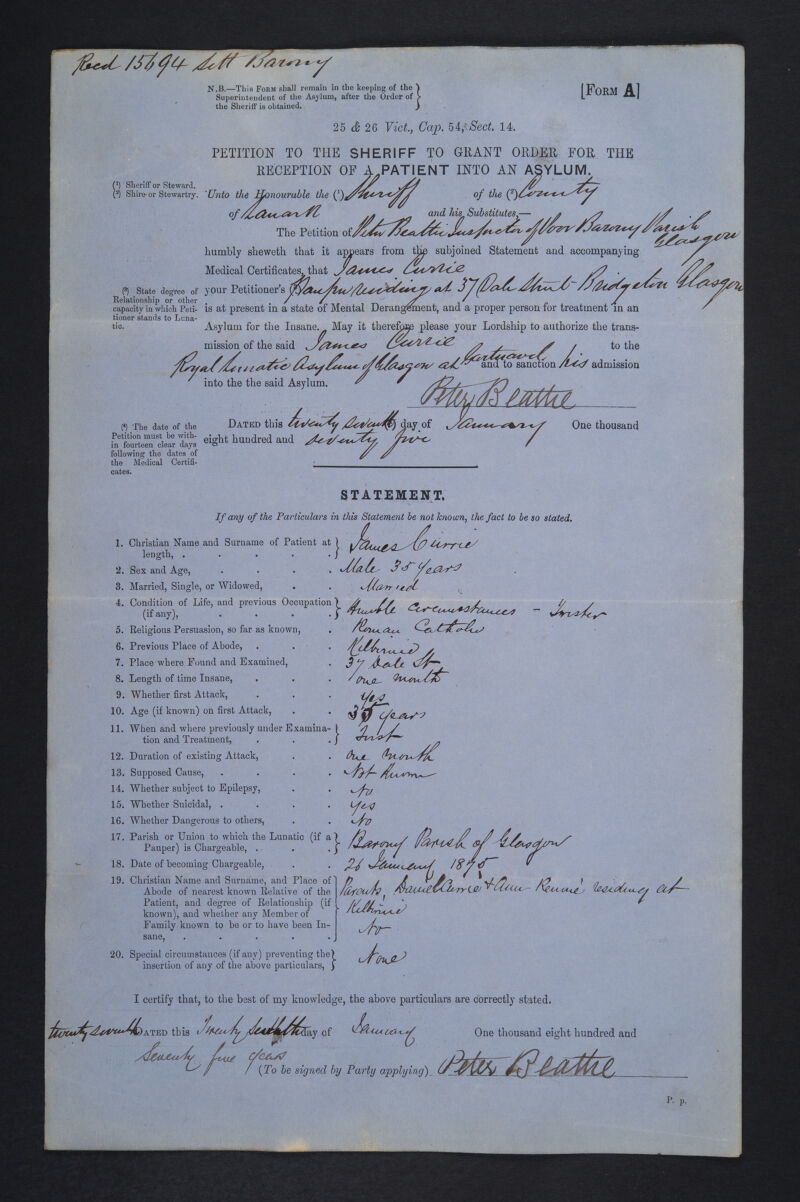 Recd 15694 Sett Barony
N.B.—This Form shall remain in the keeping of the
Superintendent of the Asylum, after the Order of
the Sheriff is obtained.
[Form A]
25 & 26 Vict., Cap. 54, Sect. 14.
PETITION TO THE SHERIFF TO GRANT ORDER FOR THE
RECEPTION OF A PATIENT INTO AN ASYLUM.
(¹) Sheriff or Steward.
(²) Shire or Stewartry.
Unto the Honourable the (¹) Sheriff of the (²) County
of Lanark and his Substitutes,—
The Petition of Peter Beattie Inspector of Poor Barony Parish
Glasgow
humbly sheweth that it appears from the subjoined Statement and accompanying
Medical Certificates, that James Currie
(³) State degree of
Relationship or other
capacity in which Peti-
tioner stands to Luna-
tic.
your Petitioner's Pauper residing at 37 Dale Street Bridgeton Glasgow
is at present in a state of Mental Derangement, and a proper person for treatment in an
Asylum for the Insane. May it therefore please your Lordship to authorize the trans-
mission of the said James Currie to the
Royal Lunatic Asylum of Glasgow at Gartnavel and to sanction his admission
into the the said Asylum.
Peter Beattie
(⁴) The date of the
Petition must be with-
in fourteen clear days
following the dates of
the Medical Certifi-
cates.
Dated this twenty seventh (⁴) day of January One thousand
eight hundred and seventy five
STATEMENT.
If any of the Particulars in this Statement be not known, the fact to be so stated.
1. Christian Name and Surname of Patient at
length, . James Currie
2. Sex and Age, Male 35 Years
3. Married, Single, or Widowed, Married
4. Condition of Life, and previous Occupation
(if any), Humble circumstances - Twister
5. Religious Persuasion, so far as known, Roman Catholic
6. Previous Place of Abode, Kilbirnie
7. Place where Found and Examined, 37 Dale St
8. Length of time Insane, one month
9. Whether first Attack, Yes
10. Age (if known) on first Attack, 35 years
11. When and where previously under Examina-
tion and Treatment, First
12. Duration of existing Attack, one month
13. Supposed Cause, Not Known
14. Whether subject to Epilepsy, No
15. Whether Suicidal, Yes
16. Whether Dangerous to others, No
17. Parish or Union to which the Lunatic (if a
Pauper) is Chargeable, Barony Parish of Glasgow
18. Date of becoming Chargeable, 26 January 1875
19. Christian Name and Surname, and Place of
Abode of nearest known Relative of the
Patient, and degree of Relationship (if
known), and whether any Member of
Family known to be or to have been In-
sane,
Parents, Daniel Currie & Ann Rennie residing at
Kilbirnie
No
20. Special circumstances (if any) preventing the
insertion of any of the above particulars, None
I certify that, to the best of my knowledge, the above particulars are correctly stated.
twenty seventh Dated this Twenty day of January One thousand eight hundred and
Seventy five years
(To be signed by Party applying) Peter Beattie
P. p.